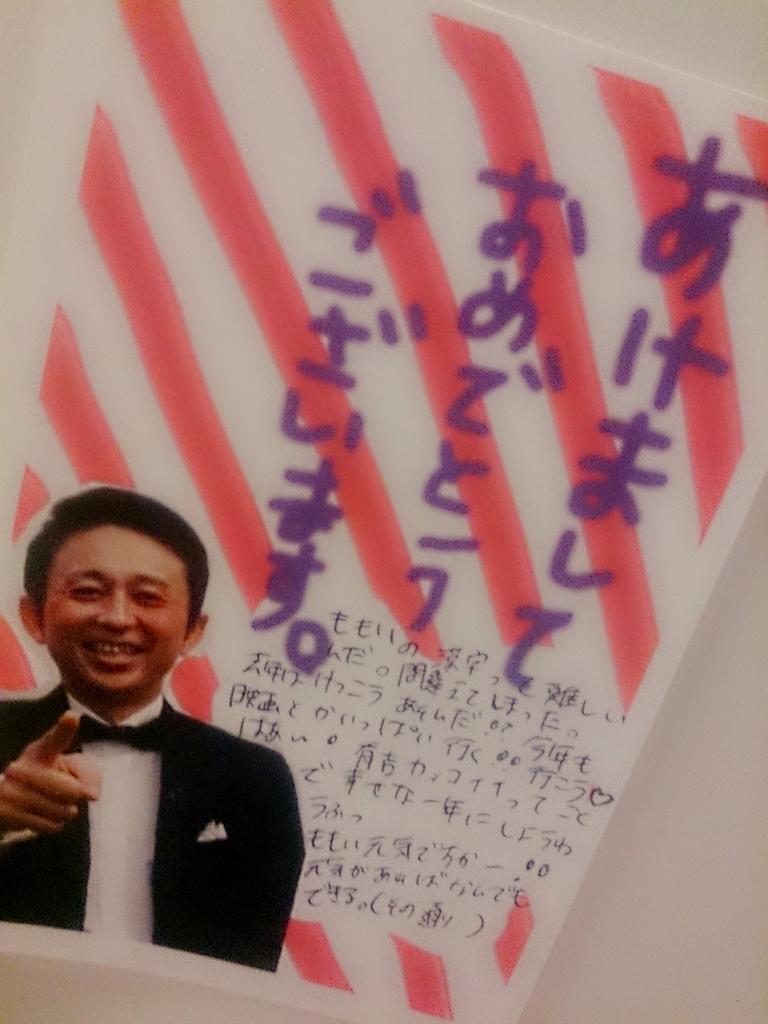 あけまして
おめでとう
ございます。
ももいの漢字って難しい
んだ。間違えてしまった。
去年はけっこう あそんだ!? 今年も
映画とかいっぱい行く!! 行こう♡
はあい。有吉カッコイイってこと
で幸せな一年にしようね
うふっ
ももい元気ですかー!!
元気があればなんでも
できる。(その通り)